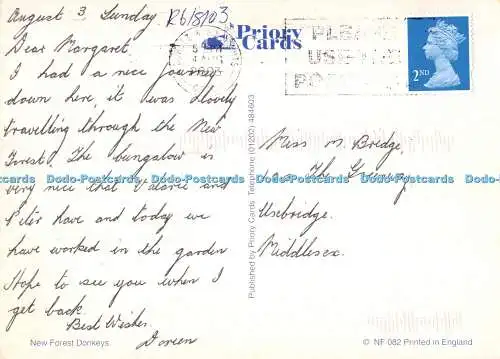 August 3 Sunday
R6/8/03
Dear Margaret,
I had a nice journey
down here, it was slovely
travelling through the New
Forest. The bungalow is
very nice that Valerie and
Peter have and today we
have worked in the garden
Hope to see you when I
get back.
Best Wishes.
Doreen
New Forest Donkeys.
Priory
Cards
Published by Priory Cards Telephone (01202) 484603
PLEASE
USE THE
2ND
Miss M. Bridge,
The Greenway
Uxbridge.
Middlesex.
© NF 082 Printed in England
Dodo-Postcards Dodo-Postcards Dodo-Postcards Dodo-Postcards Dodo-Postcards Dodo-Postcards